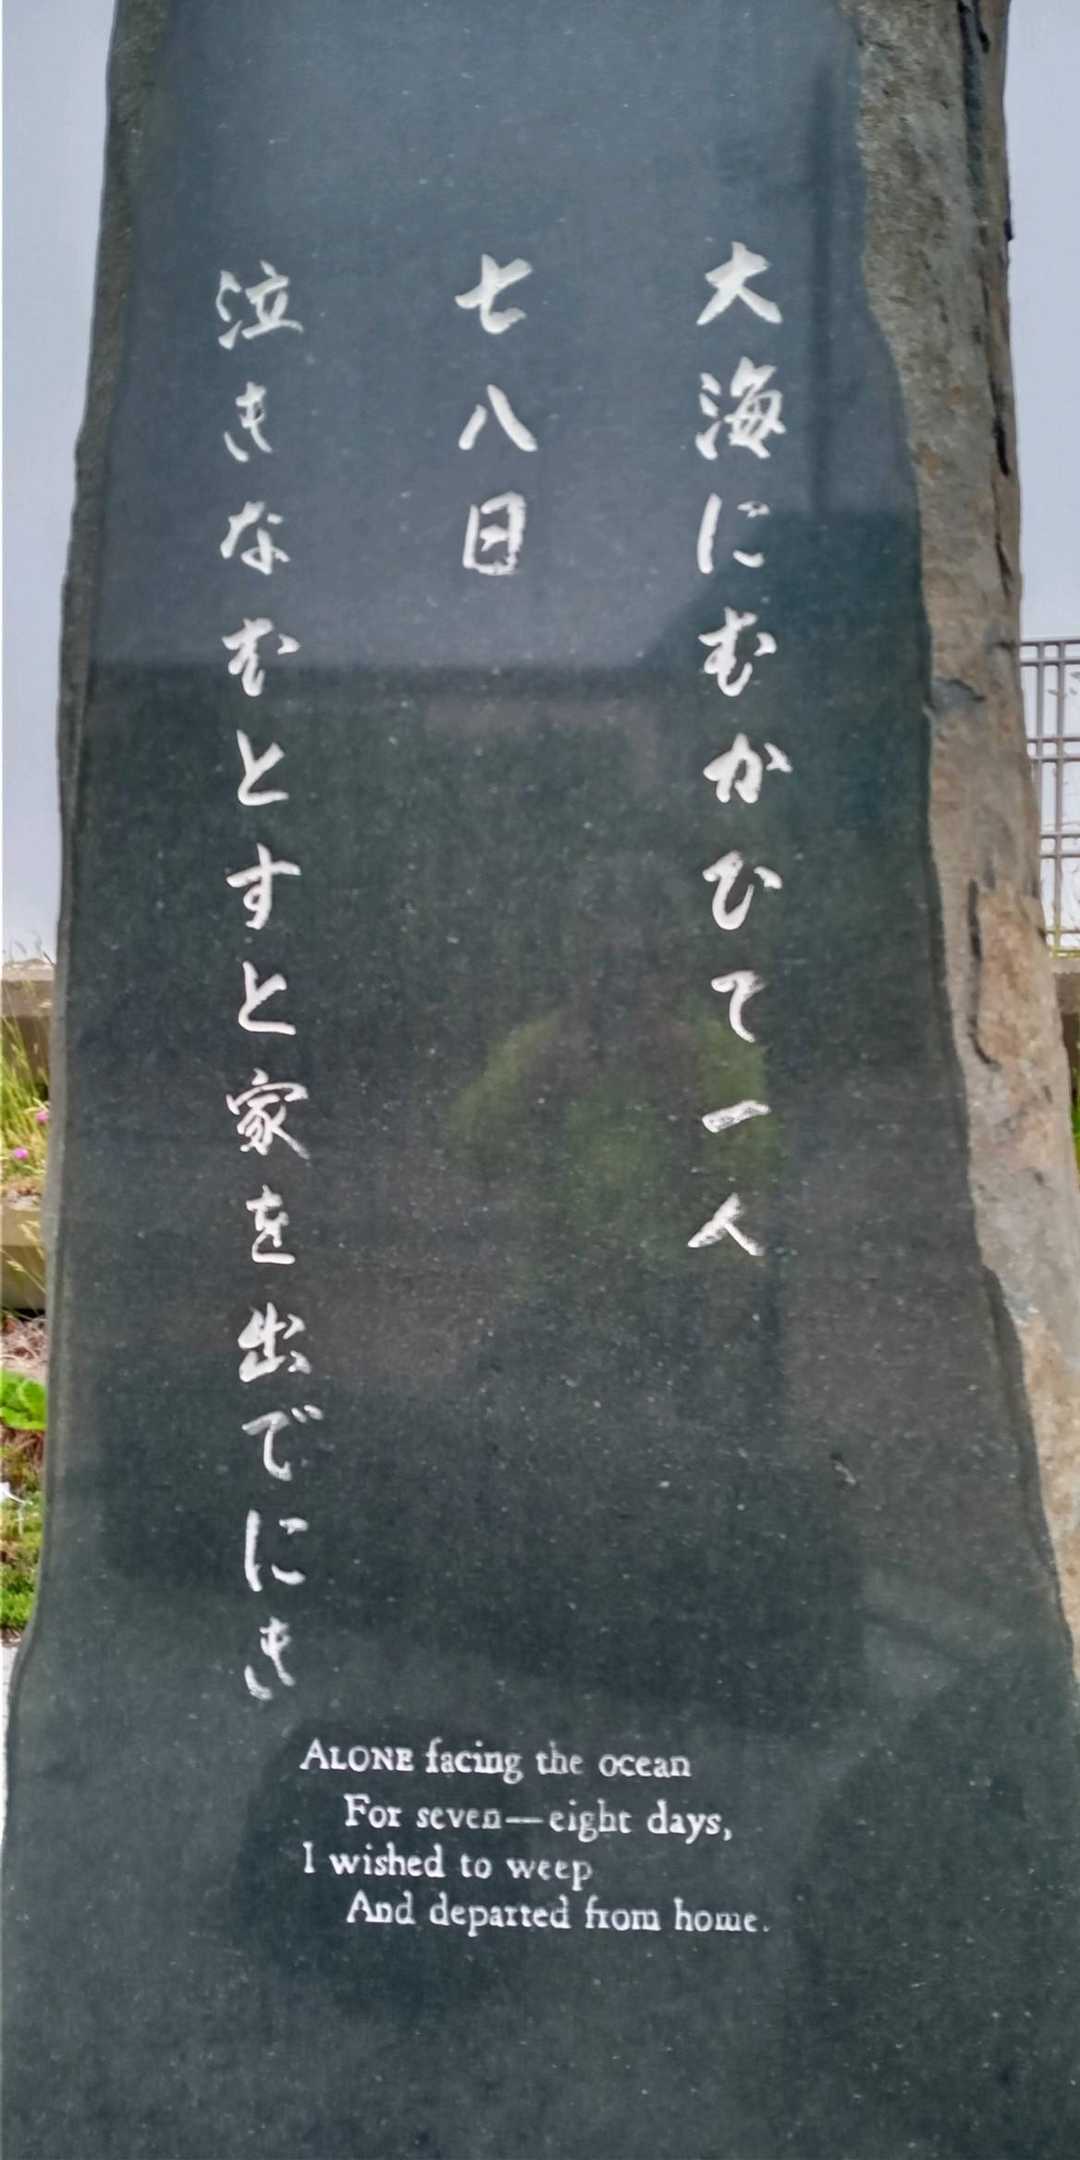 大海にむかひて一人
七八日
泣きなむとすと家を出でにき
ALONE facing the ocean
For seven—eight days,
I wished to weep
And departed from home.